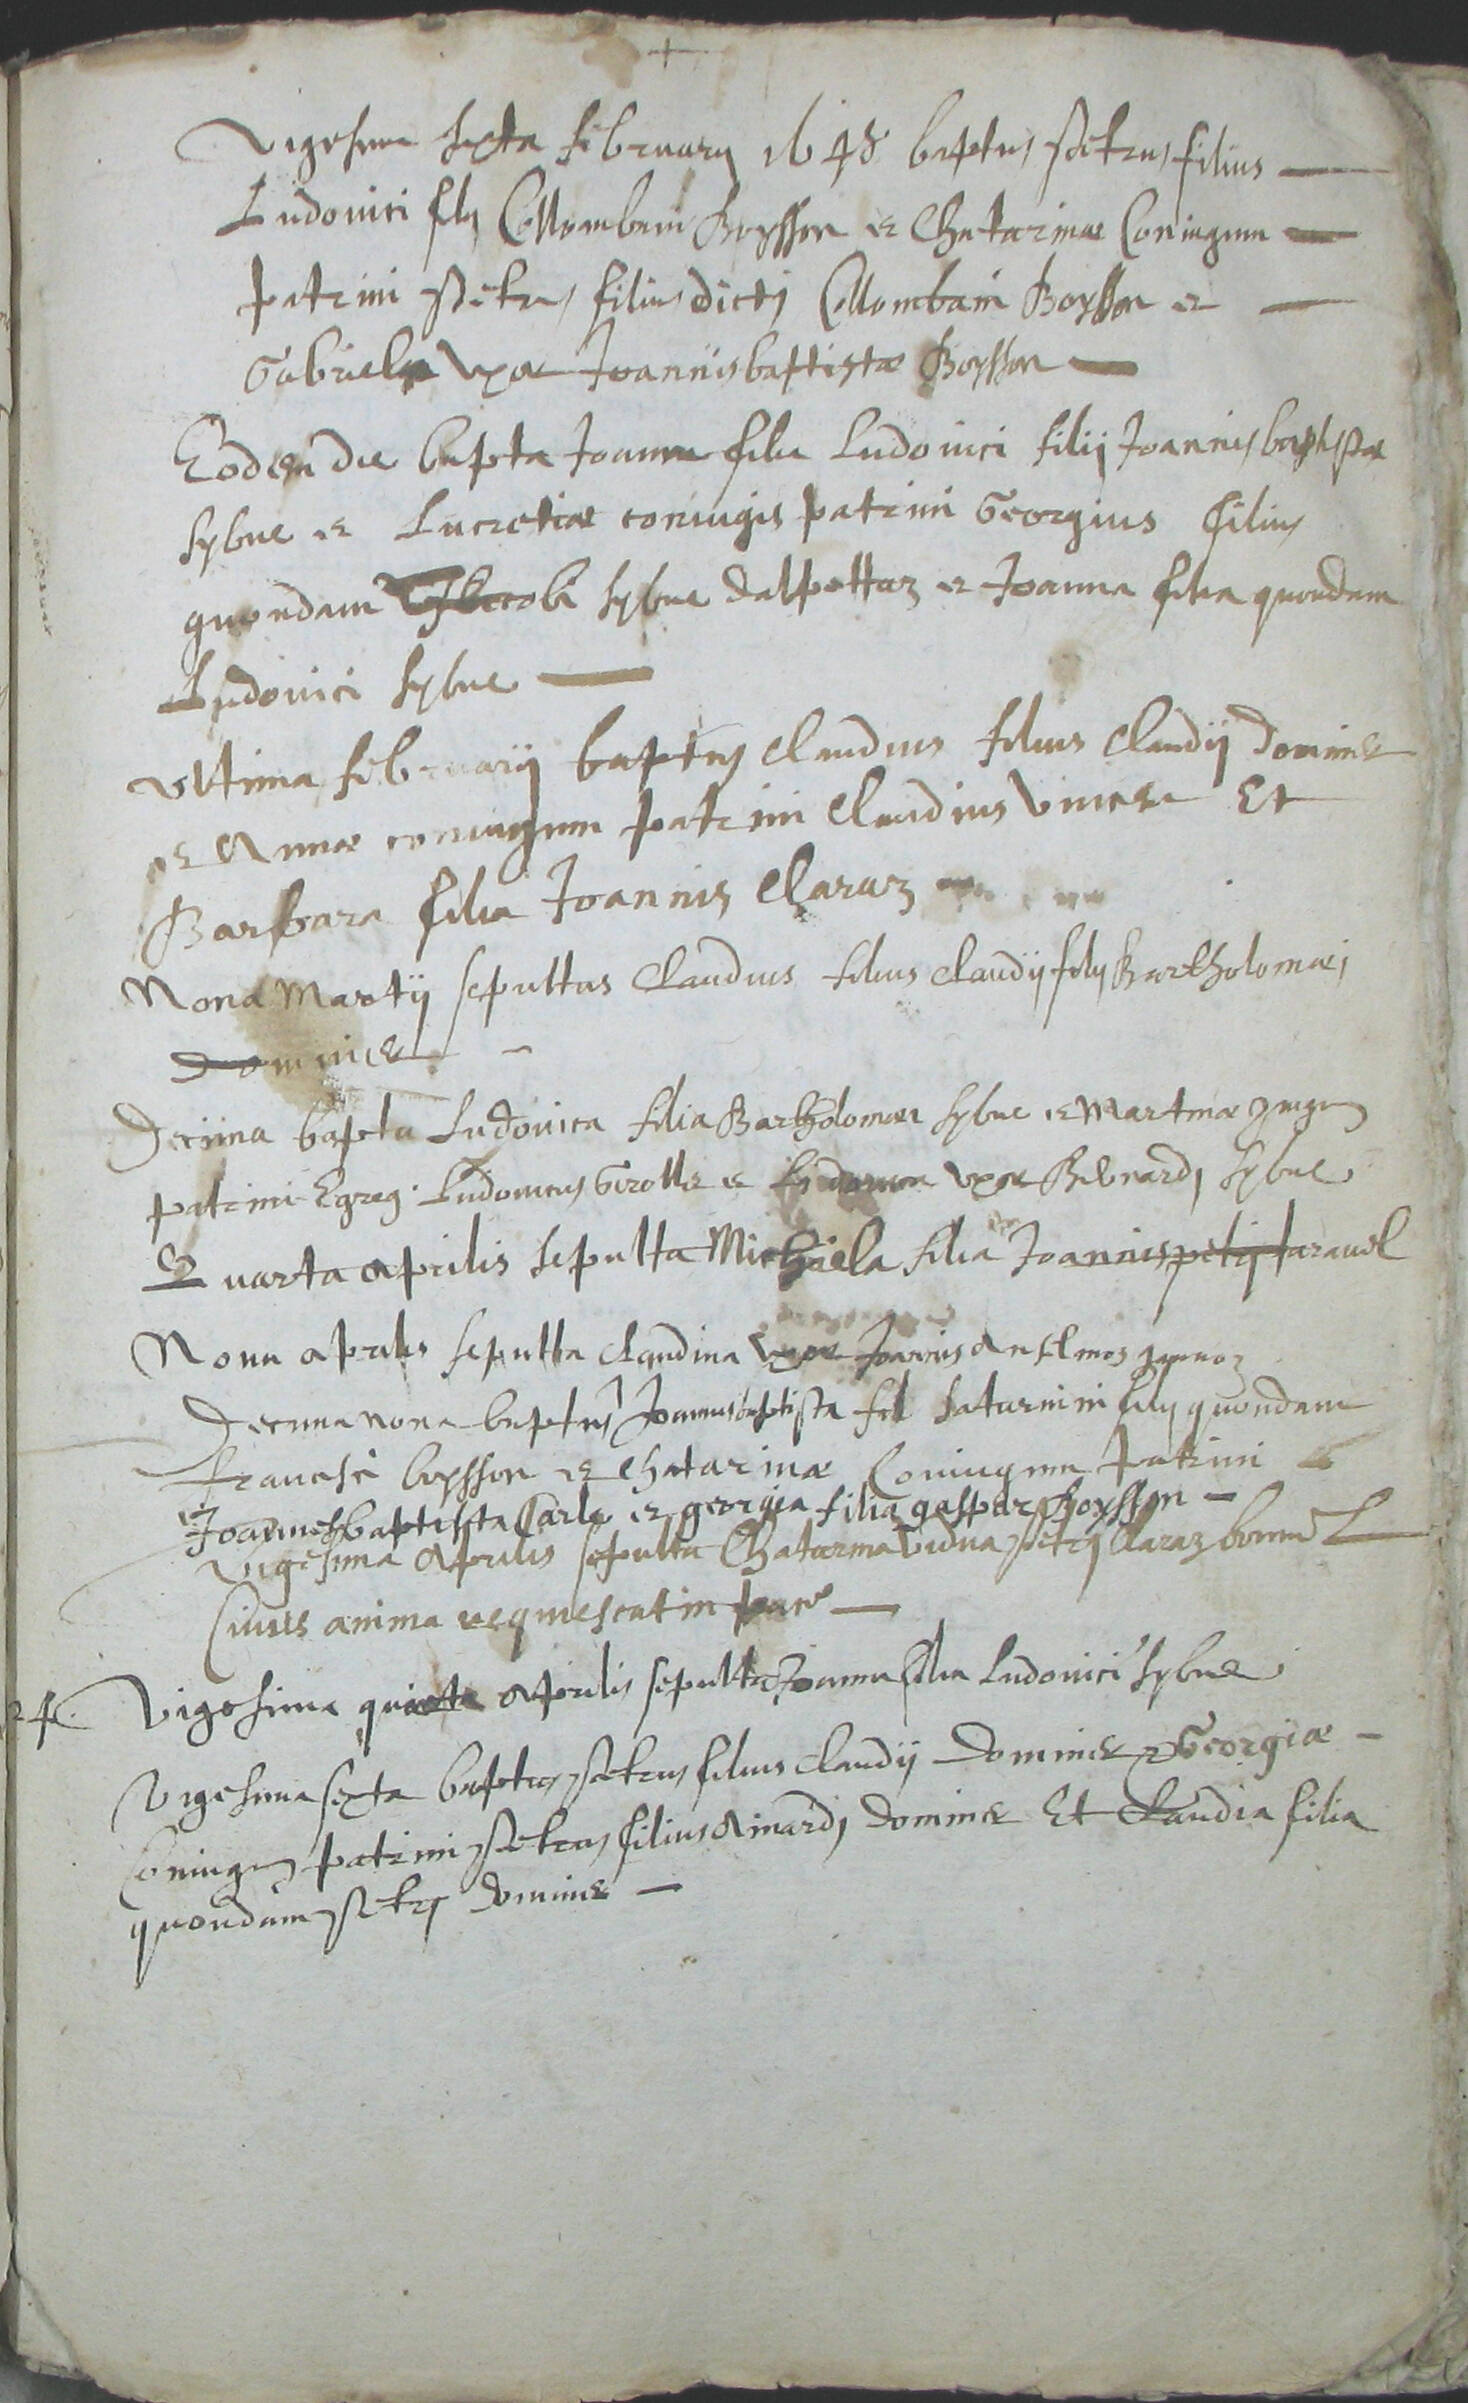 +
Vigesima sexta februarij 1648 baptus petrus filius
Ludovici filij Collombani Boysson et Chatarinae Coniugum
patrini petrus filius dicti Collombani Boysson et
Gabriela Uxor Joannisbaptistae Boysson
Eodem die bapta Joanna filia Ludovici filij Joannisbaptistae
sybue et Lucretiae coniugis patrini Georgius filius
quondam Jacobi sybue dalpettaz et Joanna filia quondam
Ludovici sybue
Ultima februarij baptus Claudius filius Claudij Dominé
et Annae coniugum patrini Claudius Et
Barbara filia Joannis Claraz
Nona Martij sepultus Claudius filius Claudij filij Bartholomaei
Dominé
Decima bapta Ludovica filia Bartholomaei sybue et Martinae
patrini Egreg. Ludovicus et uxor Bernardi sybue
Quarta aprilis sepulta Michaela filia Joannispetri taravel
Nona aprilis sepulta Claudina uxor Joannis Anselmoz
Decima nona baptus Joannesbaptista fil Saturnini filij quondam
francisci boysson et Chatarinae Coniugum patrini
Joannesbaptista Carle et georgia filia gaspar boysson
Vigesima Aprilis sepulta Chatarina vidua petri Claraz
Cuius anima requiescat in pace
24. Vigesima quarta Aprilis sepulta Joanna filia Ludovici sybue
Vigesima sexta baptus petrus filius Claudij Dominé et Georgiae
Coniugum patrini petrus filius Ainardi Dominé Et Claudia filia
quondam petri Dominé